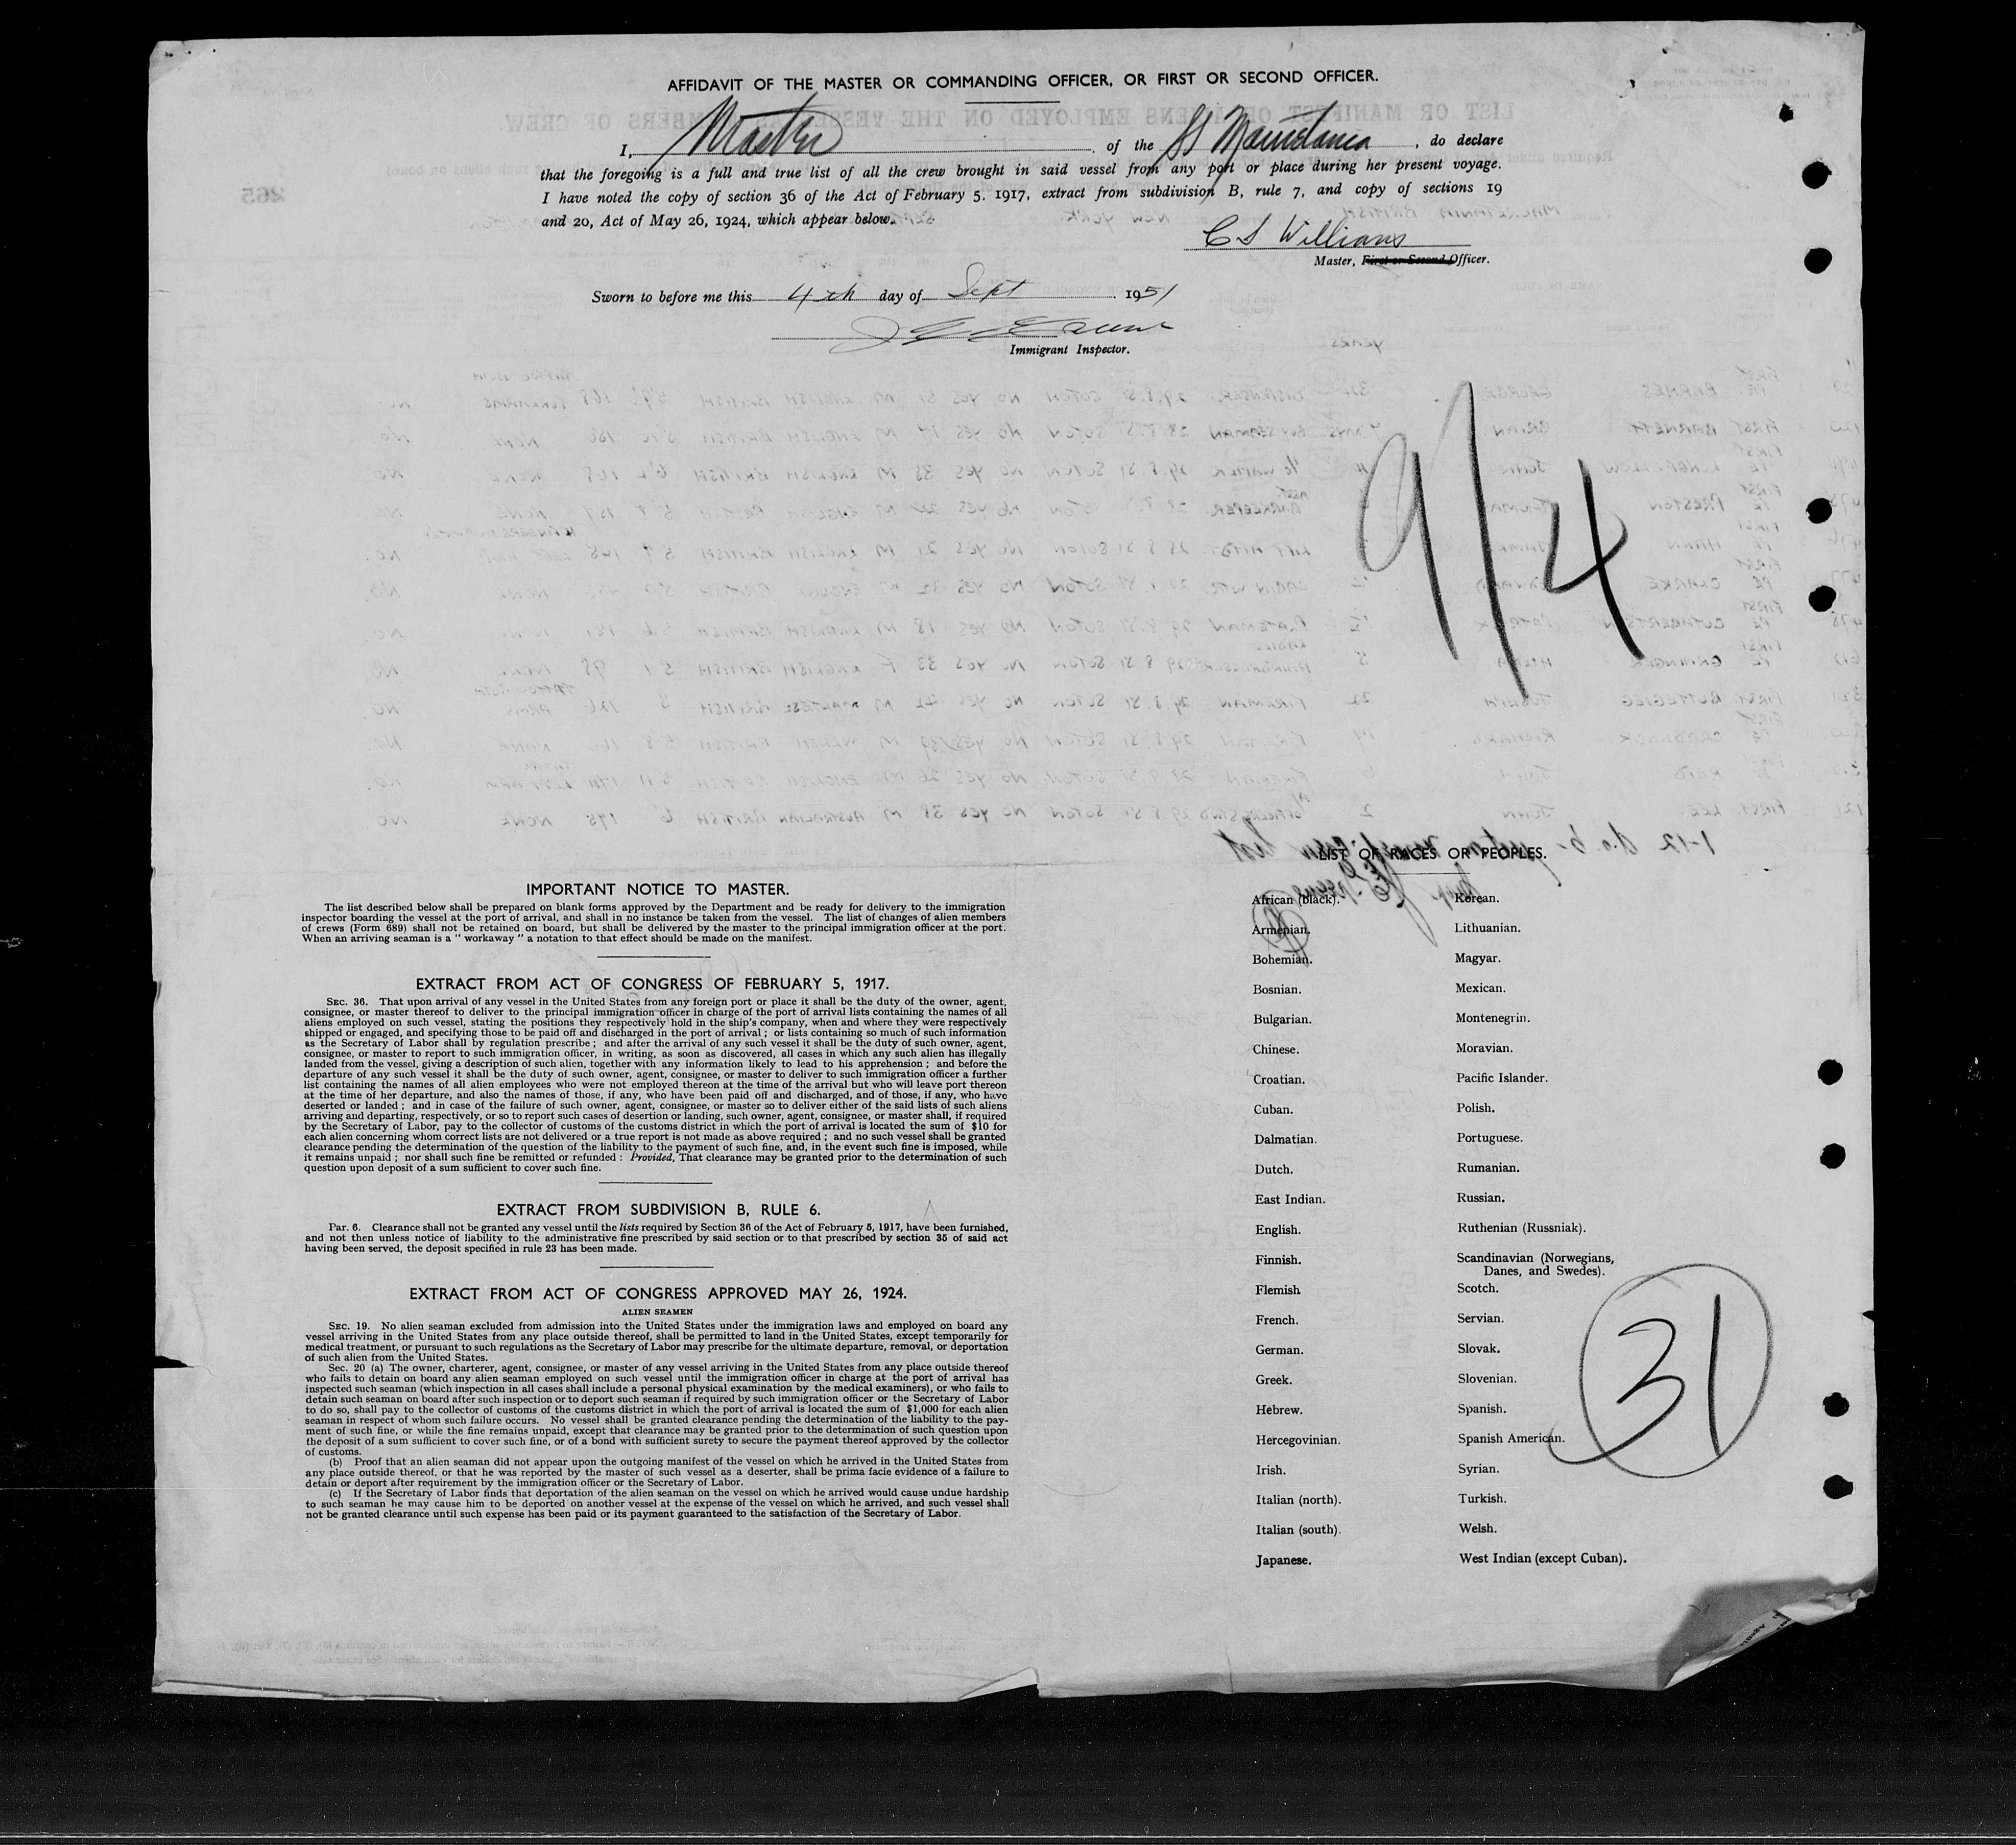 AFFIDAVIT OF THE MASTER OR COMMANDING OFFICER, OR FIRST OR SECOND OFFICER.
I, Master of the SS Mauretania, do declare
that the foregoing is a full and true list of all the crew brought in said vessel from any port or place during her present voyage.
I have noted the copy of section 36 of the Act of February 5, 1917, extract from subdivision B, rule 7, and copy of sections 19
and 20, Act of May 26, 1924, which appear below.
C S Williams
Master, First or Second Officer.
Sworn to before me this 4th day of Sept 1951
Immigrant Inspector.
9/4
IMPORTANT NOTICE TO MASTER.
The list described below shall be prepared on blank forms approved by the Department and be ready for delivery to the immigration
inspector boarding the vessel at the port of arrival, and shall in no instance be taken from the vessel. The list of changes of alien members
of crews (Form 689) shall not be retained on board, but shall be delivered by the master to the principal immigration officer at the port.
When an arriving seaman is a " workaway " a notation to that effect should be made on the manifest.
EXTRACT FROM ACT OF CONGRESS OF FEBRUARY 5, 1917.
SEC. 36. That upon arrival of any vessel in the United States from any foreign port or place it shall be the duty of the owner, agent,
consignee, or master thereof to deliver to the principal immigration officer in charge of the port of arrival lists containing the names of all
aliens employed on such vessel, stating the positions they respectively hold in the ship's company, when and where they were respectively
shipped or engaged, and specifying those to be paid off and discharged in the port of arrival ; or lists containing so much of such information
as the Secretary of Labor shall by regulation prescribe ; and after the arrival of any such vessel it shall be the duty of such owner, agent,
consignee, or master to report to such immigration officer, in writing, as soon as discovered, all cases in which any such alien has illegally
landed from the vessel, giving a description of such alien, together with any information likely to lead to his apprehension ; and before the
departure of any such vessel it shall be the duty of such owner, agent, consignee, or master to deliver to such immigration officer a further
list containing the names of all alien employees who were not employed thereon at the time of the arrival but who will leave port thereon
at the time of her departure, and also the names of those, if any, who have been paid off and discharged, and of those, if any, who have
deserted or landed ; and in case of the failure of such owner, agent, consignee, or master so to deliver either of the said lists of such aliens
arriving and departing, respectively, or so to report such cases of desertion or landing, such owner, agent, consignee, or master shall, if required
by the Secretary of Labor, pay to the collector of customs of the customs district in which the port of arrival is located the sum of $10 for
each alien concerning whom correct lists are not delivered or a true report is not made as above required ; and no such vessel shall be granted
clearance pending the determination of the question of the liability to the payment of such fine, and, in the event such fine is imposed, while
it remains unpaid ; nor shall such fine be remitted or refunded : Provided, That clearance may be granted prior to the determination of such
question upon deposit of a sum sufficient to cover such fine.
EXTRACT FROM SUBDIVISION B, RULE 6.
Par. 6. Clearance shall not be granted any vessel until the lists required by Section 36 of the Act of February 5, 1917, have been furnished,
and not then unless notice of liability to the administrative fine prescribed by said section or to that prescribed by section 35 of said act
having been served, the deposit specified in rule 23 has been made.
EXTRACT FROM ACT OF CONGRESS APPROVED MAY 26, 1924.
ALIEN SEAMEN
SEC. 19. No alien seaman excluded from admission into the United States under the immigration laws and employed on board any
vessel arriving in the United States from any place outside thereof, shall be permitted to land in the United States, except temporarily for
medical treatment, or pursuant to such regulations as the Secretary of Labor may prescribe for the ultimate departure, removal, or deportation
of such alien from the United States.
Sec. 20 (a) The owner, charterer, agent, consignee, or master of any vessel arriving in the United States from any place outside thereof
who fails to detain on board any alien seaman employed on such vessel until the immigration officer in charge at the port of arrival has
inspected such seaman (which inspection in all cases shall include a personal physical examination by the medical examiners), or who fails to
detain such seaman on board after such inspection or to deport such seaman if required by such immigration officer or the Secretary of Labor
to do so, shall pay to the collector of customs of the customs district in which the port of arrival is located the sum of $1,000 for each alien
seaman in respect of whom such failure occurs. No vessel shall be granted clearance pending the determination of the liability to the pay-
ment of such fine, or while the fine remains unpaid, except that clearance may be granted prior to the determination of such question upon
the deposit of a sum sufficient to cover such fine, or of a bond with sufficient surety to secure the payment thereof approved by the collector
of customs.
(b) Proof that an alien seaman did not appear upon the outgoing manifest of the vessel on which he arrived in the United States from
any place outside thereof, or that he was reported by the master of such vessel as a deserter, shall be prima facie evidence of a failure to
detain or deport after requirement by the immigration officer or the Secretary of Labor.
(c) If the Secretary of Labor finds that deportation of the alien seaman on the vessel on which he arrived would cause undue hardship
to such seaman he may cause him to be deported on another vessel at the expense of the vessel on which he arrived, and such vessel shall
not be granted clearance until such expense has been paid or its payment guaranteed to the satisfaction of the Secretary of Labor.
LIST OF RACES OR PEOPLES.
African (black).
Armenian.
Bohemian.
Bosnian.
Bulgarian.
Chinese.
Croatian.
Cuban.
Dalmatian.
Dutch.
East Indian.
English.
Finnish.
Flemish
French.
German.
Greek.
Hebrew.
Hercegovinian.
Irish.
Italian (north).
Italian (south).
Japanese.
Korean.
Lithuanian.
Magyar.
Mexican.
Montenegrin.
Moravian.
Pacific Islander.
Polish.
Portuguese.
Rumanian.
Russian.
Ruthenian (Russniak).
Scandinavian (Norwegians,
Danes, and Swedes).
Scotch.
Servian.
Slovak.
Slovenian.
Spanish.
Spanish American.
Syrian.
Turkish.
Welsh.
West Indian (except Cuban).
31